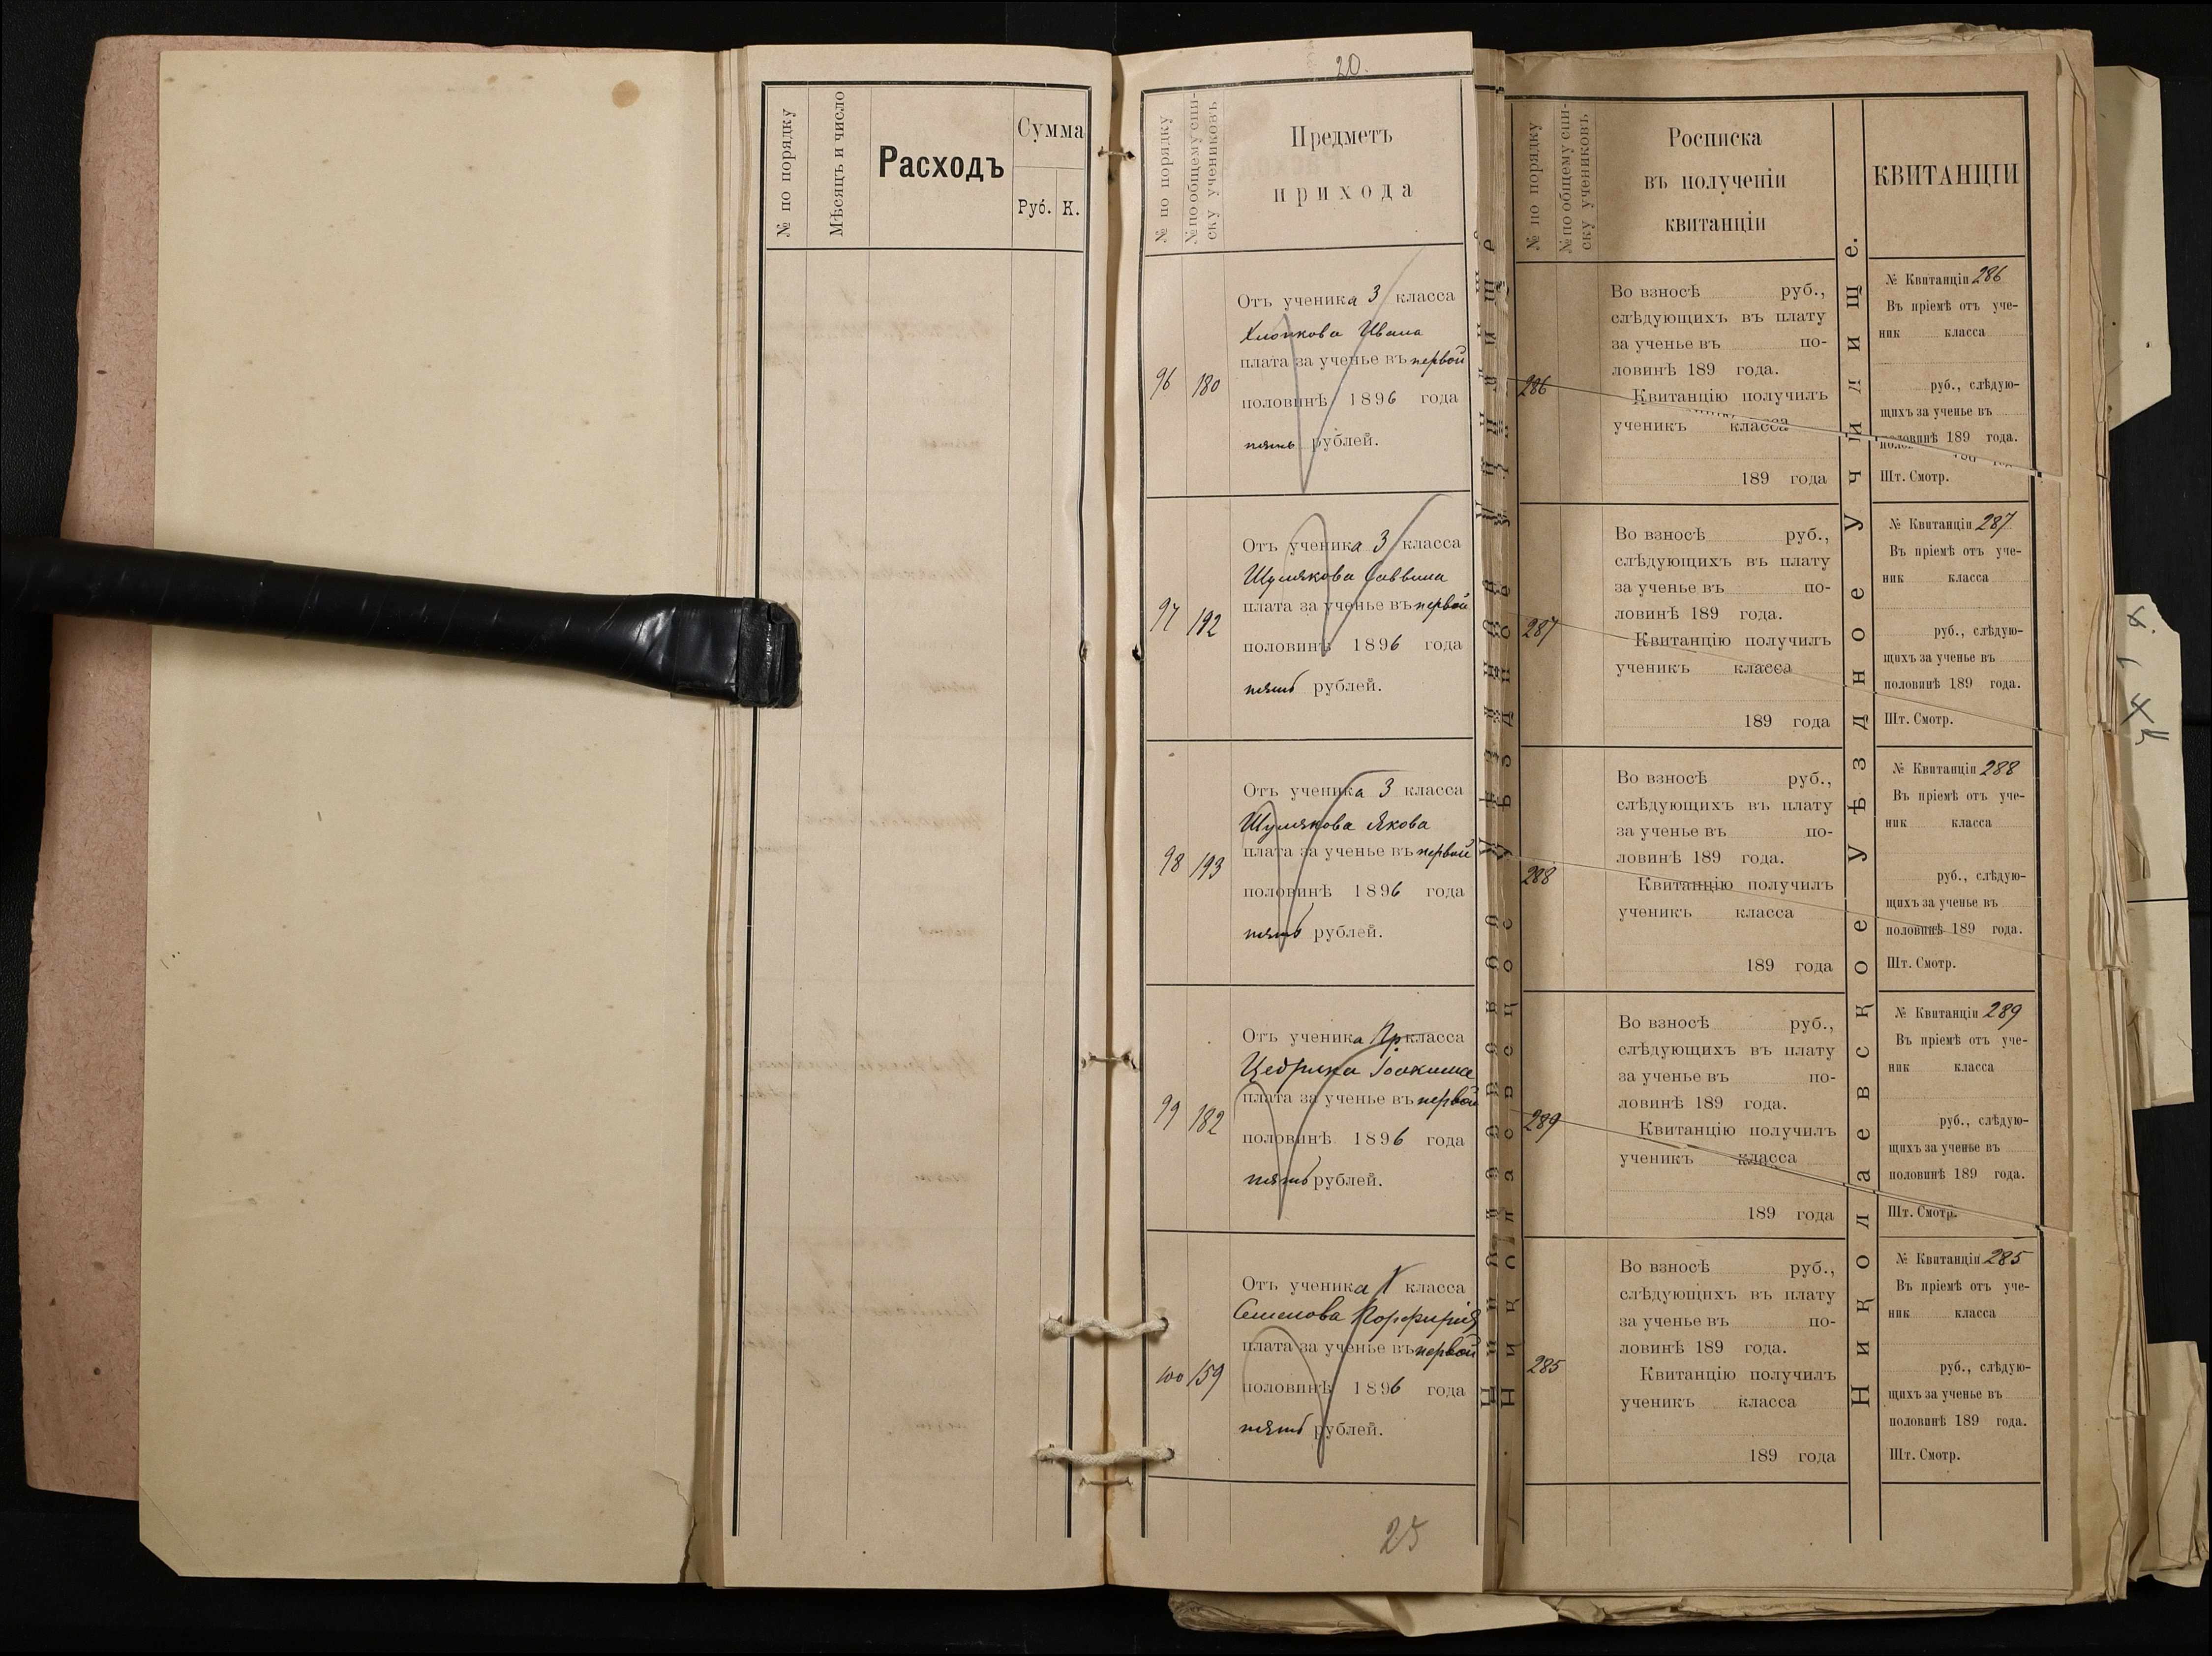 № по порядку
Мѣсяцъ и число
Расходъ
Сумма
Руб. К.
20.
№ по порядку
№ по общему спи-
ску учениковъ
Предметъ
прихода
96 180
Отъ ученика 3 класса
Ивана
плата за ученье въ первой
половинѣ 1896 года
пять рублей.
97 192
Отъ ученика 3 класса
Шумякова Саввина
плата за ученье въ первой
половинѣ 1896 года
пять рублей.
98 193
Отъ ученика 3 класса
Шумякова Якова
плата за ученье въ первой
половинѣ 1896 года
пять рублей.
99 182
Отъ ученика Пр класса
Цедрика Іоакима
плата за ученье въ первой
половинѣ 1896 года
пять рублей.
100 159
Отъ ученика класса
Семенова Порфирія
плата за ученье въ первой
половинѣ 1896 года
пять рублей.
25
№ по порядку
№ по общему спи-
ску учениковъ
Росписка
въ полученіи
квитанціи
286
Во взносѣ руб.,
слѣдующихъ въ плату
за ученье въ по-
ловинѣ 189 года.
Квитанцію получилъ
ученикъ класса
189 года
287
Во взносѣ руб.,
слѣдующихъ въ плату
за ученье въ по-
ловинѣ 189 года.
Квитанцію получилъ
ученикъ класса
189 года
288
Во взносѣ руб.,
слѣдующихъ въ плату
за ученье въ по-
ловинѣ 189 года.
Квитанцію получилъ
ученикъ класса
189 года
289
Во взносѣ руб.,
слѣдующихъ въ плату
за ученье въ по-
ловинѣ 189 года.
Квитанцію получилъ
ученикъ класса
189 года
285
Во взносѣ руб.,
слѣдующихъ въ плату
за ученье въ по-
ловинѣ 189 года.
Квитанцію получилъ
ученикъ класса
189 года
Николаевское Уѣздное Училище.
КВИТАНЦІИ
№ Квитанціи 286
Въ пріемѣ отъ уче-
ник класса
руб., слѣдую-
щихъ за ученье въ
половинѣ 189 года.
Шт. Смотр.
№ Квитанціи 287
Въ пріемѣ отъ уче-
ник класса
руб., слѣдую-
щихъ за ученье въ
половинѣ 189 года.
Шт. Смотр.
№ Квитанціи 288
Въ пріемѣ отъ уче-
ник класса
руб., слѣдую-
щихъ за ученье въ
половинѣ 189 года.
Шт. Смотр.
№ Квитанціи 289
Въ пріемѣ отъ уче-
ник класса
руб., слѣдую-
щихъ за ученье въ
половинѣ 189 года.
Шт. Смотр.
№ Квитанціи 285
Въ пріемѣ отъ уче-
ник класса
руб., слѣдую-
щихъ за ученье въ
половинѣ 189 года.
Шт. Смотр.